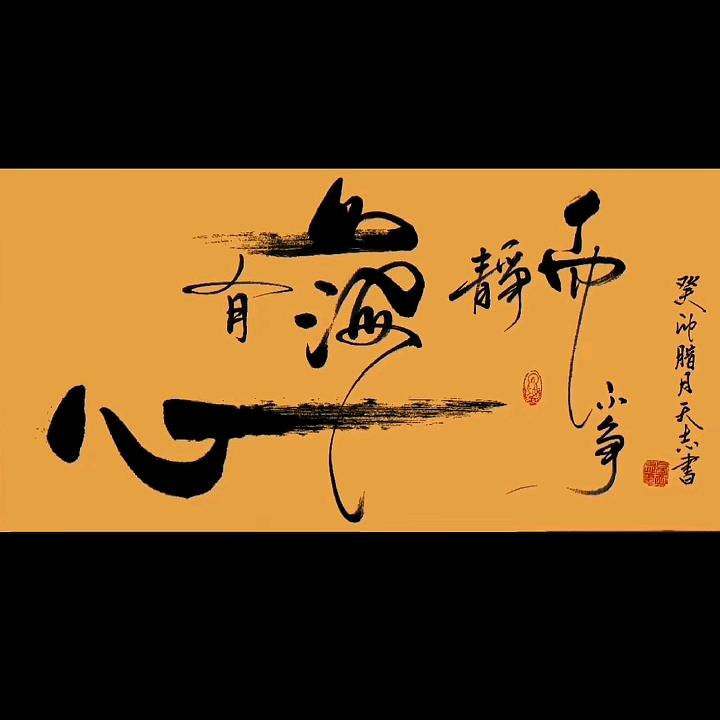 心有山海
静而不争
癸卯腊月天志書